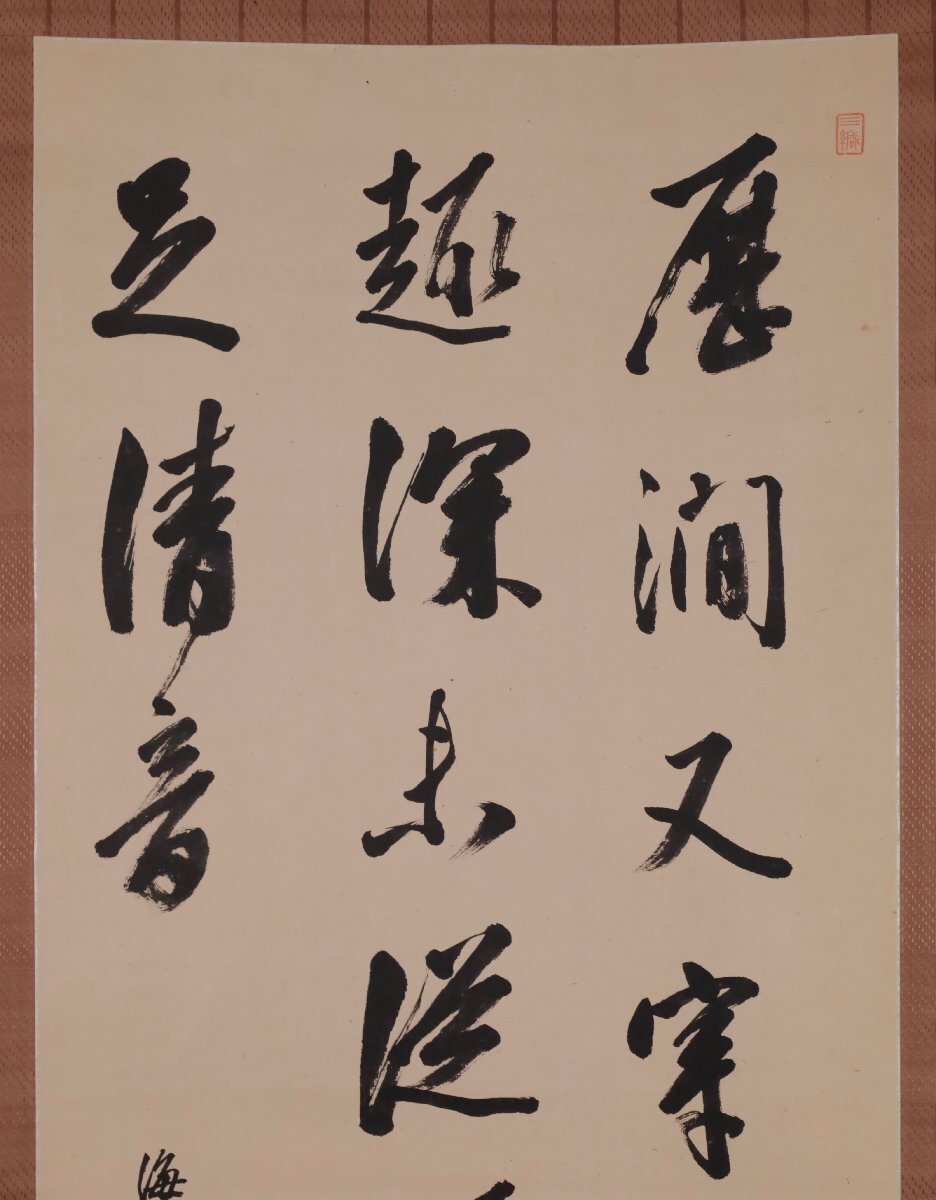 歴澗又穿
趣深未從
足清音
海
三緘